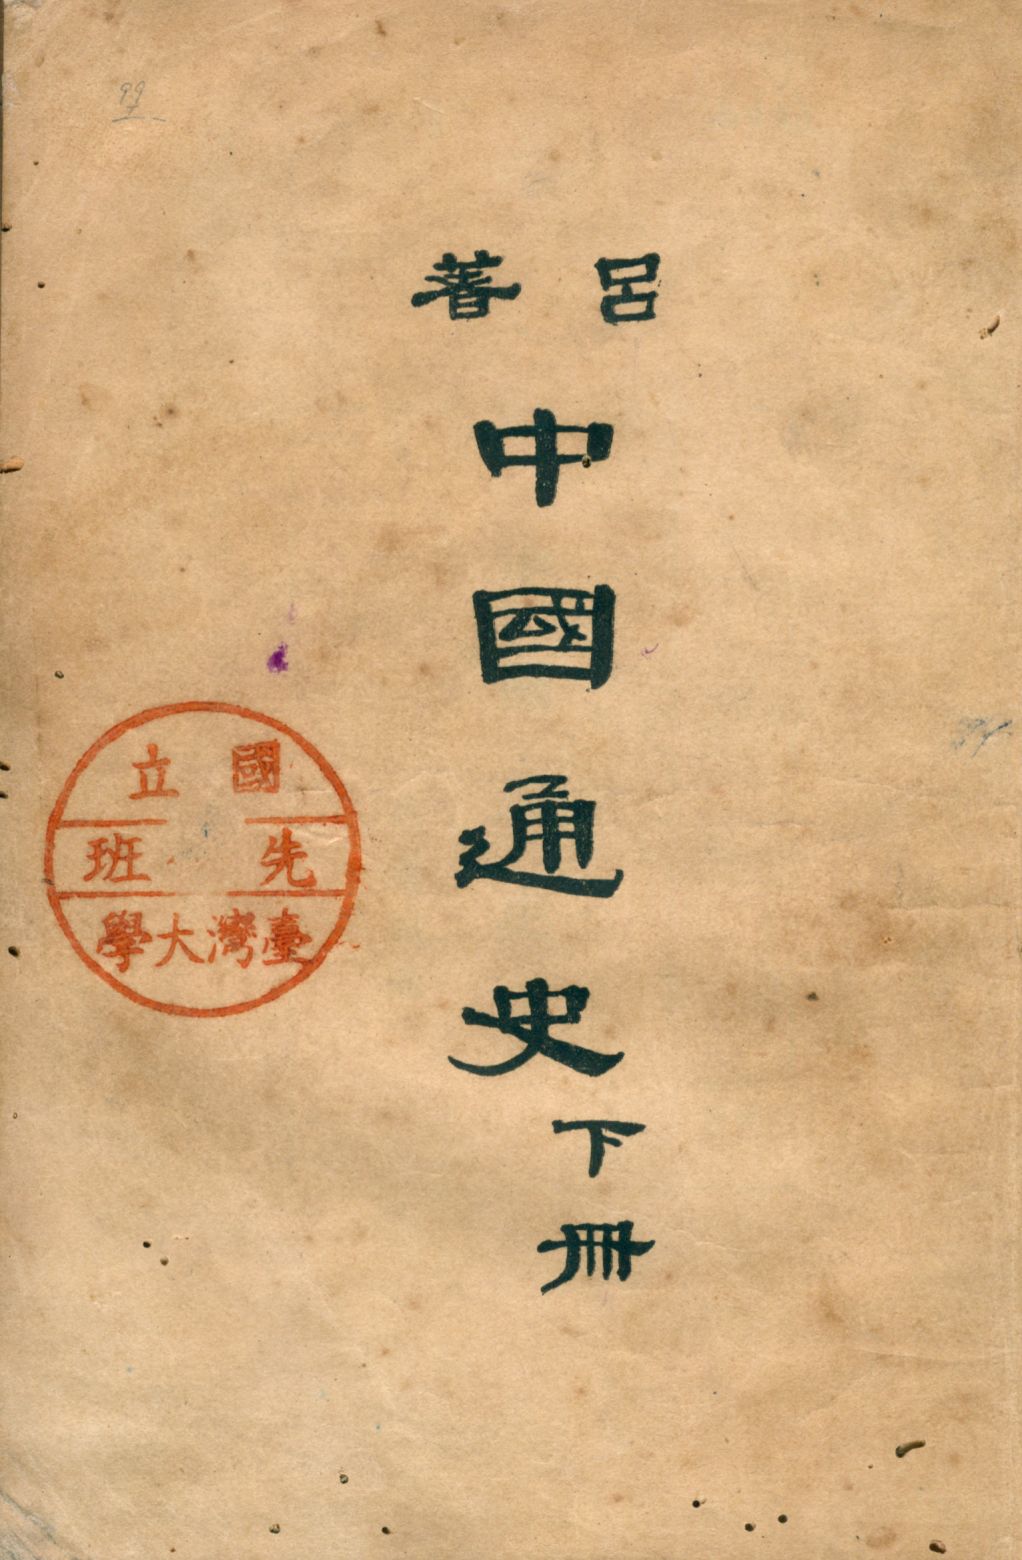 呂著
中國通史下冊
國立
先班
臺灣大學
99